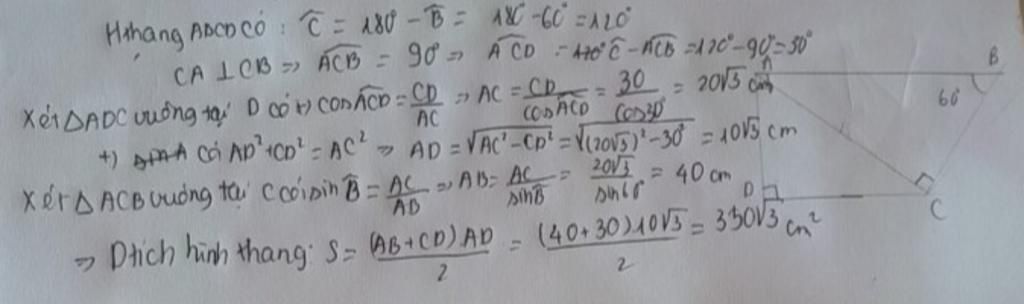 Hthang ABCD có : Ĉ = 180° - B̂ = 180° - 60° = 120°
CA ⊥ CB => ACB = 90° => ACD = Ĉ - ACB = 120° - 90° = 30°
Xét ΔADC vuông tại D có +) cosACD = CD/AC => AC = CD/cosACD = 30/cos30° = 20√3 cm
+) Có AD² + CD² = AC² => AD = √AC² - CD² = √(20√3)² - 30² = 10√3 cm
Xét ΔACB vuông tại C có sin B̂ = AC/AB => AB = AC/sinB̂ = 20√3/sin60° = 40 cm
=> Dtích hình thang: S = (AB + CD) AD/2 = (40 + 30) 10√3/2 = 350√3 cm²
A
B
60°
D
C